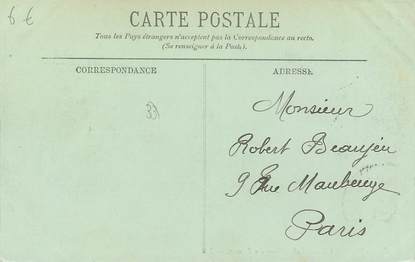 6 €
CARTE POSTALE
Tous les Pays étrangers n'acceptent pas la Correspondance au recto.
(Se renseigner à la Poste).
CORRESPONDANCE
ADRESSE
Monsieur
Robert Beaujeu
9 Rue Maubeuge
Paris